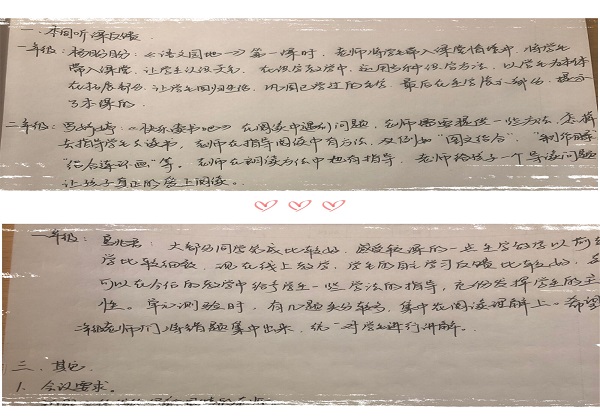 一.本周听课反馈.
一年级:杨盼盼:《语文园地一》第一课时.老师将学生带入课堂情境中,将学生
带入课堂,让学生认识天气.在识字教学中,运用多种识字方法.以学生为主体
在拓展部分,让学生回归生活,巩固已学过的生字.最后在生字展示部分,提示
了本课的
二年级:《快乐读书吧》在阅读中遇到问题,老师需要提供一些方法,怎样
去指导学生去读书,老师在指导阅读中有方法,例如"图文结合","制作
"结合课环画"等.老师在朗读方法中也有指导,老师给孩子一个导读问题
让孩子真正的爱上阅读。
一年级:大部分同学完成比较好,感受较深的一些生字的学以前
学比较细致,现在线上教学,学生的自主学习反馈比较好,
可以在今后的教学中给予学生一些学法的指导,充分发挥学生的主
性。单元测验时,有几题失分较多,集中在阅读理解上。希望
老师们将错题集中出来,统一对学生进行讲解。
三.其它
1.会议要求。